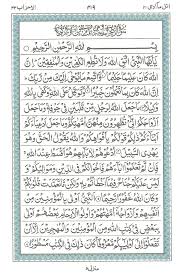 الاحزاب ٣٣
٤١٩
اتل مآ اوحی ٢١
بِسْمِ اللهِ الرَّحْمٰنِ الرَّحِيْمِ
يٰٓاَيُّهَا النَّبِيُّ اتَّقِ اللهَ وَلَا تُطِعِ الْكٰفِرِيْنَ وَالْمُنٰفِقِيْنَ اِنَّ
اللهَ كَانَ عَلِيْمًا حَكِيْمًا وَّاتَّبِعْ مَا يُوْحٰٓى اِلَيْكَ مِنْ رَّبِّكَ اِنَّ
اللهَ كَانَ بِمَا تَعْمَلُوْنَ خَبِيْرًا وَّتَوَكَّلْ عَلَى اللهِ وَكَفٰى بِاللهِ
وَكِيْلًا مَا جَعَلَ اللهُ لِرَجُلٍ مِّنْ قَلْبَيْنِ فِيْ جَوْفِهٖ وَمَا جَعَلَ
اَزْوَاجَكُمُ الّٰٓـِٔيْ تُظٰهِرُوْنَ مِنْهُنَّ اُمَّهٰتِكُمْ وَمَا جَعَلَ اَدْعِيَآءَكُمْ
اَبْنَآءَكُمْ ذٰلِكُمْ قَوْلُكُمْ بِاَفْوَاهِكُمْ وَاللهُ يَقُوْلُ الْحَقَّ وَهُوَ
يَهْدِي السَّبِيْلَ اُدْعُوْهُمْ لِاٰبَآئِهِمْ هُوَ اَقْسَطُ عِنْدَ اللهِ
فَاِنْ لَّمْ تَعْلَمُوْٓا اٰبَآءَهُمْ فَاِخْوَانُكُمْ فِي الدِّيْنِ وَمَوَالِيْكُمْ وَ
لَيْسَ عَلَيْكُمْ جُنَاحٌ فِيْمَآ اَخْطَاْتُمْ بِهٖ وَلٰكِنْ مَّا تَعَمَّدَتْ قُلُوْبُكُمْ وَكَانَ
اللهُ غَفُوْرًا رَّحِيْمًا اَلنَّبِيُّ اَوْلٰى بِالْمُؤْمِنِيْنَ مِنْ اَنْفُسِهِمْ وَ
اَزْوَاجُهٗٓ اُمَّهٰتُهُمْ وَاُولُوا الْاَرْحَامِ بَعْضُهُمْ اَوْلٰى
بِبَعْضٍ فِيْ كِتٰبِ اللهِ مِنَ الْمُؤْمِنِيْنَ وَالْمُهٰجِرِيْنَ اِلَّآ اَنْ
تَفْعَلُوْٓا اِلٰٓى اَوْلِيٰٓئِكُمْ مَّعْرُوْفًا كَانَ ذٰلِكَ فِي الْكِتٰبِ مَسْطُوْرًا
منزل ٥